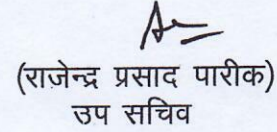 (राजेन्द्र प्रसाद पारीक)
उप सचिव